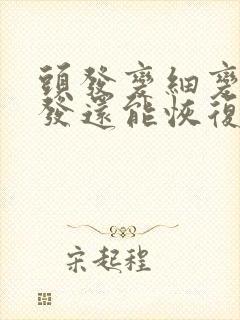 頭發變細變
發還能恢復
宋起程